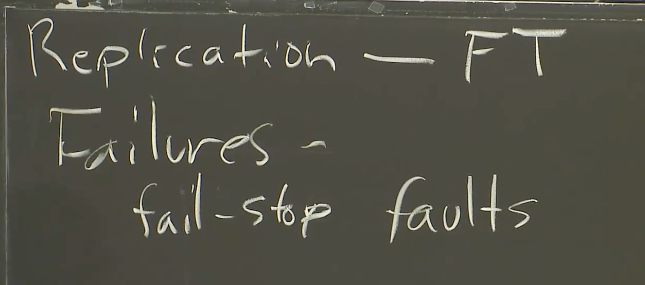 Replication — FT
Failures -
fail-stop faults